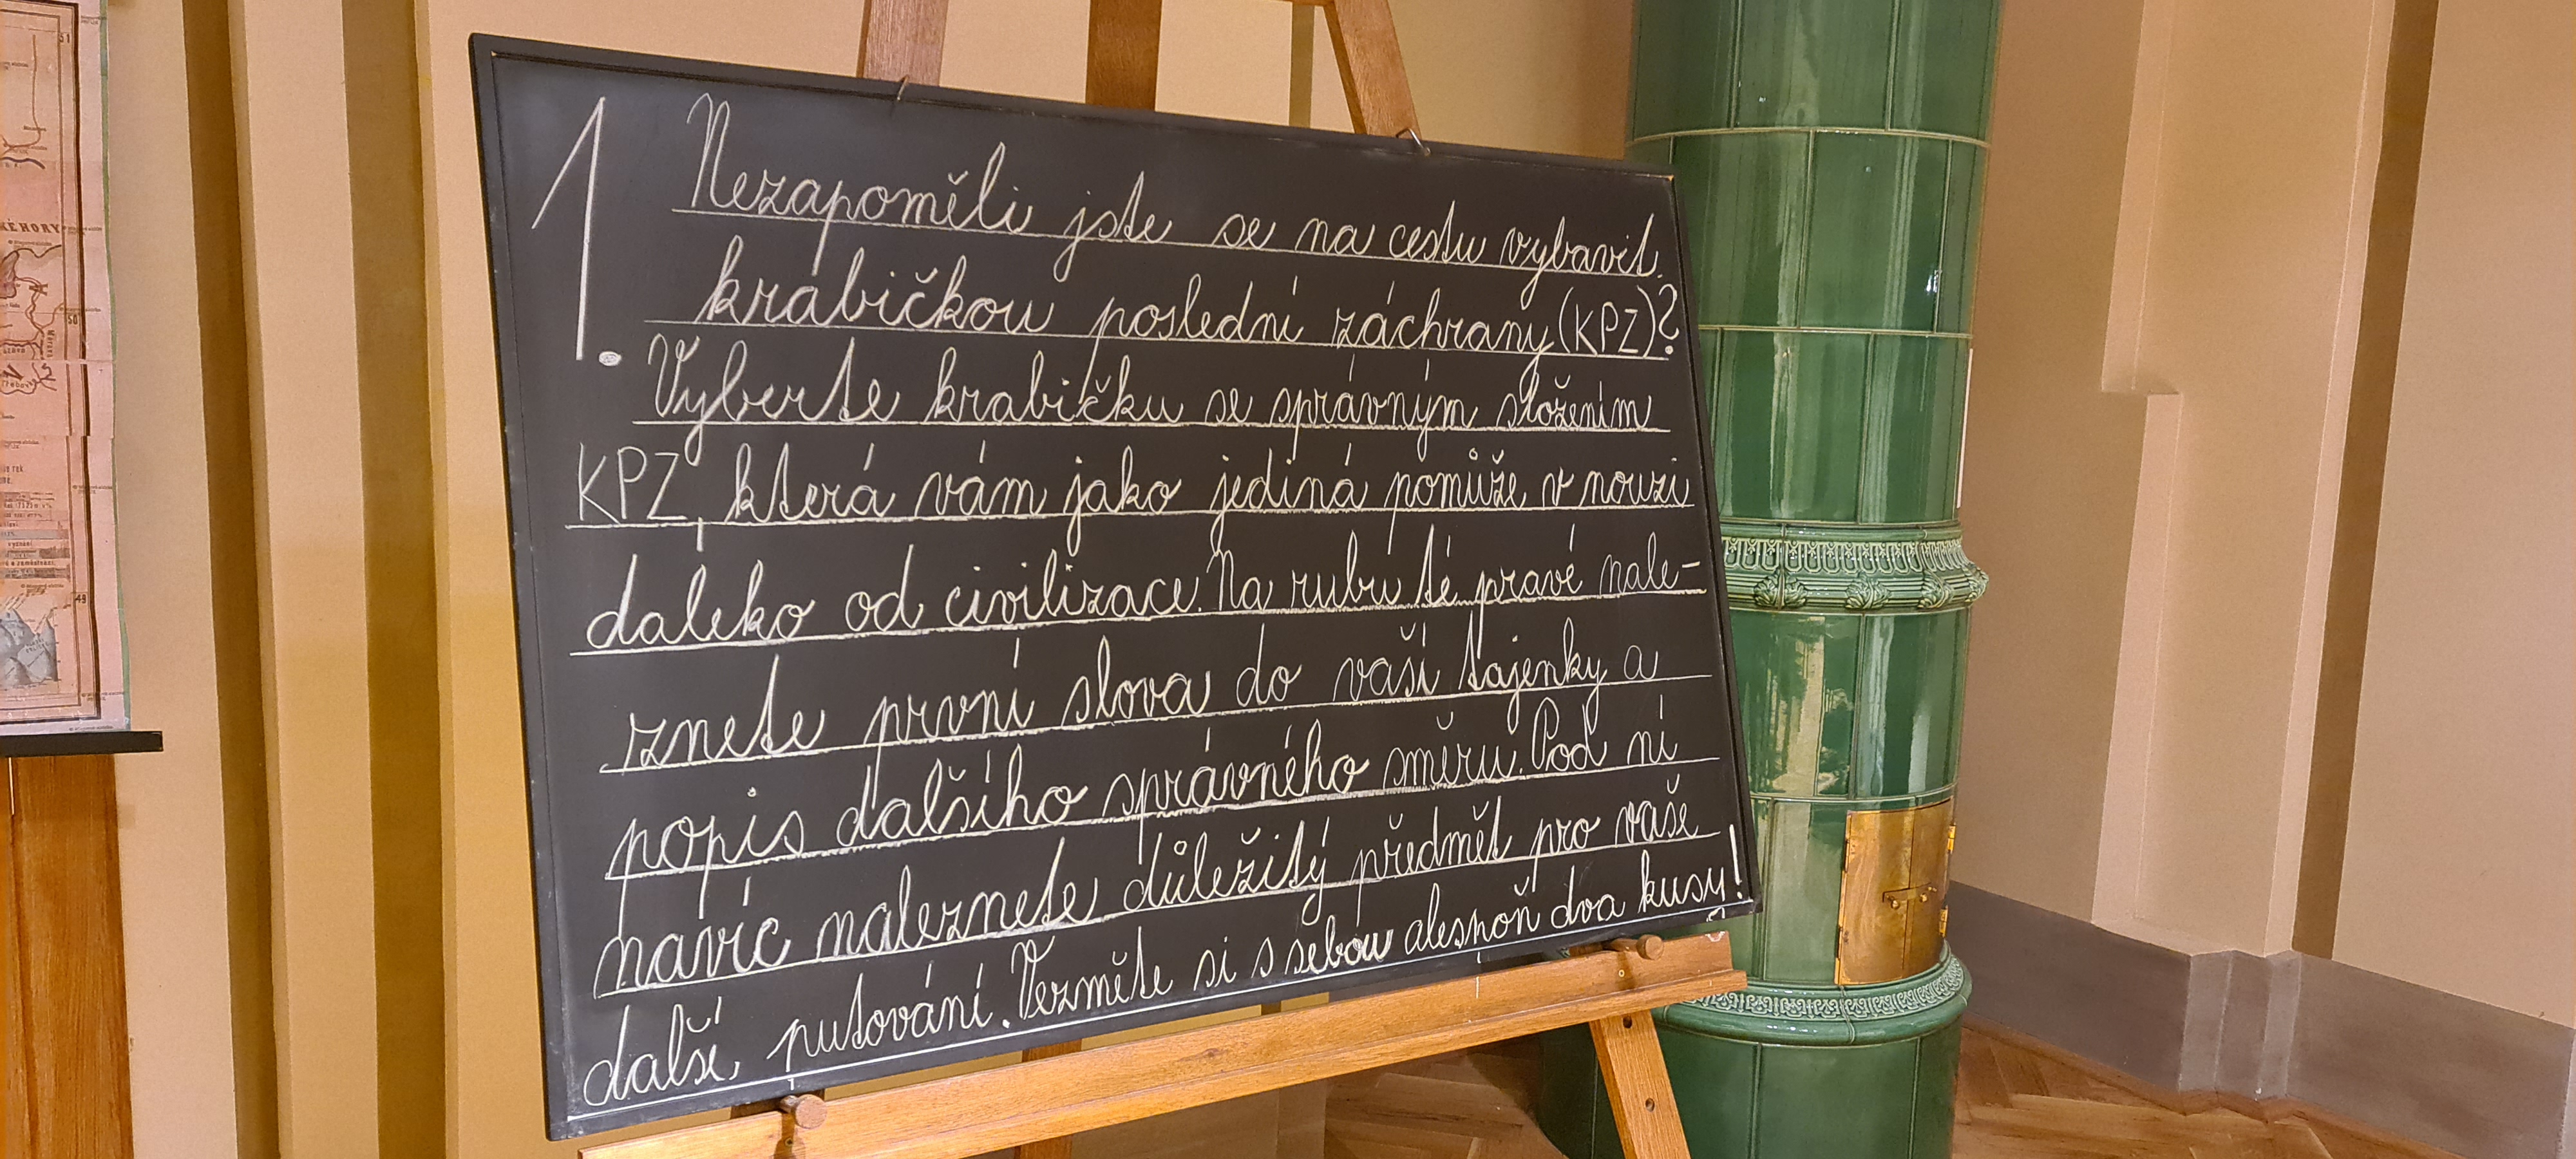 1. Nezapoměli jste se na cestu vybavit
krabičkou poslední záchrany (KPZ)?
Vyberte krabičku se správným složením
KPZ, která vám jako jediná pomůže v nouzi
daleko od civilizace. Na rubu té pravé nale-
znete první slova do vaší tajenky a
popis dalšího správného směru. Pod ní
navíc naleznete důležitý předmět pro vaše
další putování. Vezměte si s sebou alespoň dva kusy!
51
KÉ HORY
50
49